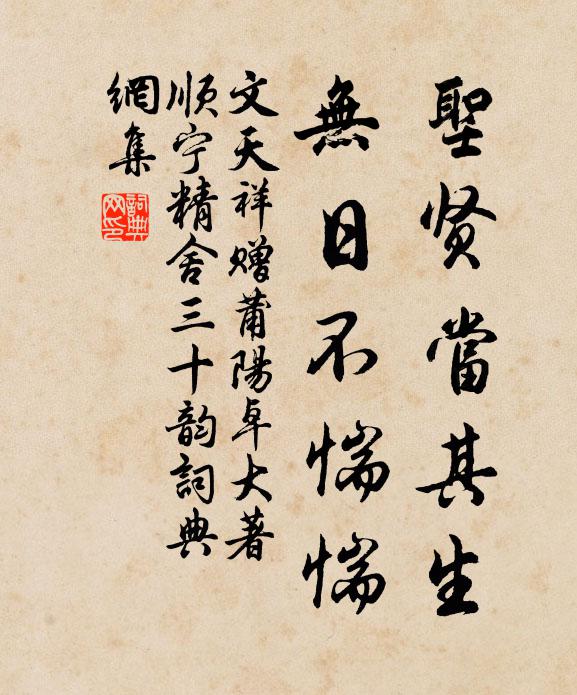 聖贤當其生
無日不惴惴
文天祥赠莆陽卓大著
順宁精舍三十韵詞典
網集
詞典網印